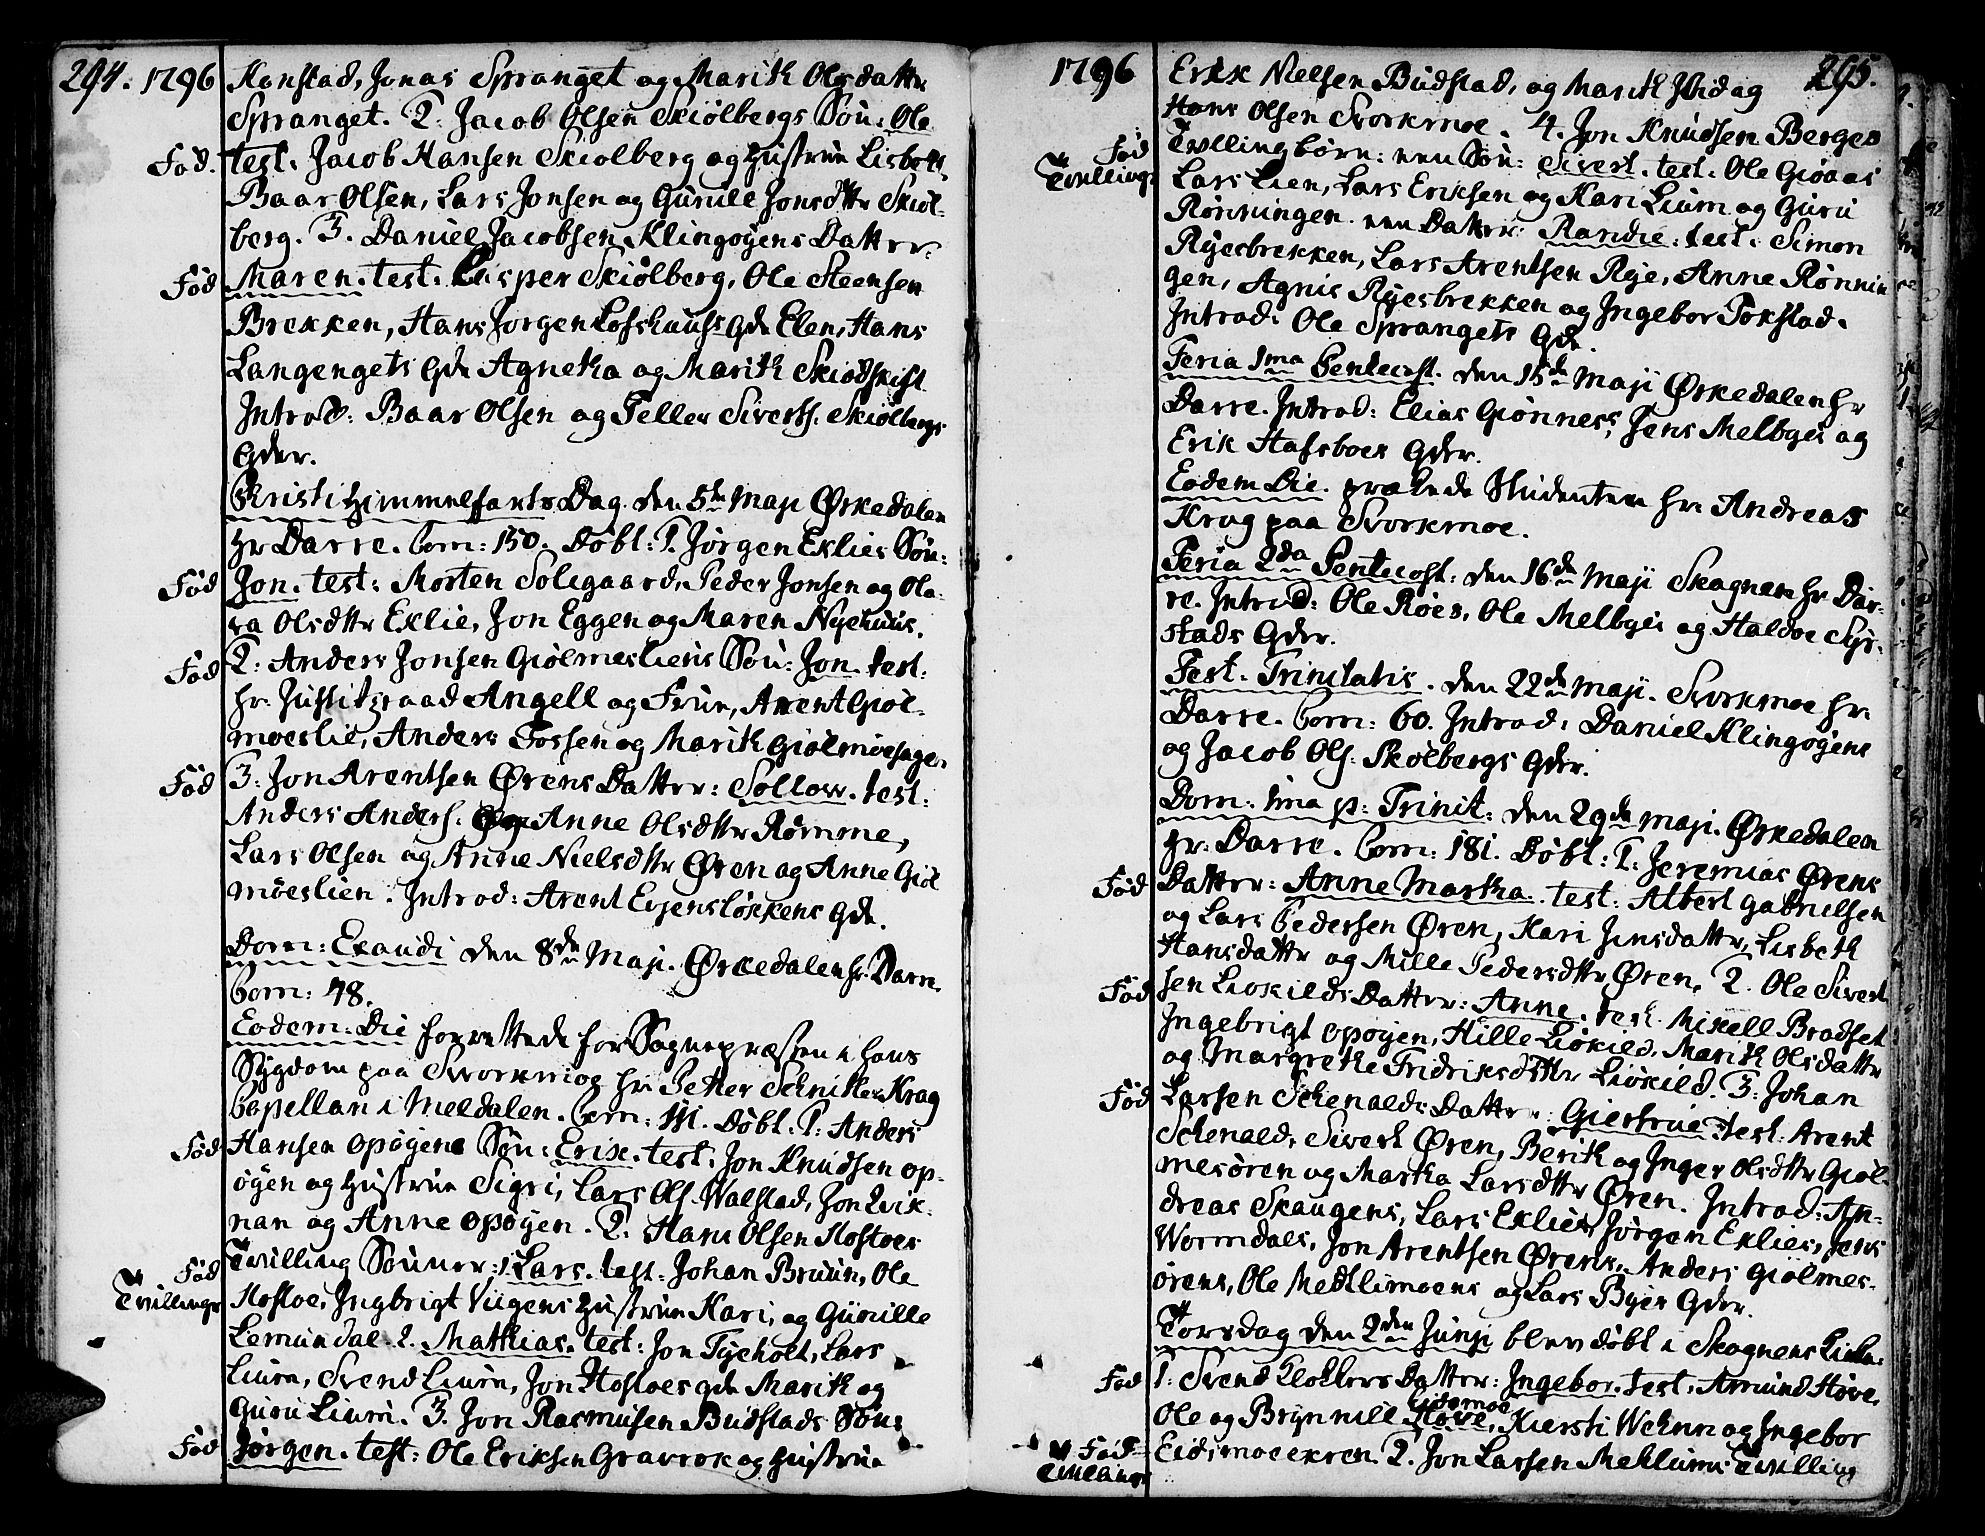 294. 1796
Konstad, Jonas Spranget og Marith Olsdattr
Spranget. 2. Jacob Olsen Skiølbergs Søn: Ole
Fød. test. Jacob Hansen Skiolberg og Hustrue Lisbeth,
Baar Olsen, Lars Jonsen og Gunild Jonsdttr Skiøl-
berg. 3. Daniel Jacobsen Klingøyens Datter:
Fød Maren. test. Casper Skiølberg, Ole Steensen
Brekken, Hans Jørgen Lofshuuss Gde Elen, Hans
Langengets Gde Agnetha og Marith Skiødskift.
Introd: Baar Olsen og Teller Siverts. Skiølbergs
Gder.
Kristi Himmelfarts Dag. den 5te Maji Ørkedalen
Hr Darre. Com: 150. Døbt: 1. Jørgen Exlies Søn:
Fød Jon. test: Morten Solegaard, Peder Jonsen og Ole-
va Olsdttr Exlie, Jon Eggen og Maren Nyehuus.
Fød 2: Anders Jonsen Giølmesliens Søn: Jon. test:
Hr: Justitzraad Angell og Frue, Arent Giøl-
moeslie, Anders Fossen og Marith Giølmøesager.
Fød 3: Jon Arentsen Ørens Datter: Sollow. test:
Anders Anders. Anne Olsdttr Rømme,
Lars Olsen og Anne Nielsdttr Øren og Anne Giøl
møeslien. Introd: Arent Evjensløkkens Gde.
Dom: Exaudi den 8de Maji. Ørkedalen Hr. Darre.
Com: 48.
Eodem: Die forrettede for Sognepræsten i hans
Sygdom paa Svorkmoe Hr: Petter Schnitler Krag
Capellan i Meldalen. Com: 111. Døbt. 1: Anders
Fød Hansen Opøgens Søn: Erik. test. Jon Knudsen Op-
øgen og Hustrue Sigri, Lars Ols. Walstad, Jon Qvik-
nan og Anne Opøgen. 2: Hans Olsen Hostoes
Fød Tvilling Sønner: 1. Lars. test: Johan Bruun, Ole
Tvillinge Hostoe, Ingbrigt Viigens Hustrue Kari, og Gunille
Lemundal. 2. Matthias. test: Jon Tyeholt, Lars
Lium, Svend Lium, Jon Hostoes Gde Marith og
Guru Lium. 3. Jon Rasmusen Budstads Søn:
Fød Jørgen. test: Ole Eriksen Gravrok og Hustrue
1796 295.
Erik Nielsen Budstad, og Marith
Hans Olsen Svorkmoe. 4. Jon Knudsen Berges
Fød Tvillingbørn: een Søn: Sivert. test: Ole Giøaas
Tvillinge Lars Lien, Lars Eriksen og Kari Lium og Guru
Rønningen. een Datter: Randie: test: Simon
Ryesbrekken, Lars Arentsen Rye, Anne Rønnin
gen, Agnis Ryesbrekken og Ingebor Tokstad.
Introd: Ole Sprangets Gde.
Feria 1ma Pentecost. den 15de Maji Ørkedalen Hr
Darre. Introd: Elias Giønness, Jens Melbyes og
Erik Hafsboes Gder.
Eodem Die. prækede Studenten Hr. Andreas
Krag paa Svorkmoe.
Feria 2da Pentecost: den 16de Maji Skagnen Hr Dar-
re. Introd: Ole Røes, Ole Melbyes og Haldoe Syr-
stads Gder.
Fest. Trinitatis. den 22de Maji. Svorkmoe Hr.
Darre. Com: 60. Introd: Daniel Klingøyens
og Jacob Ols: Skølbergs Gder.
Dom: 1ma p: Trinit: den 29de Maji. Ørkedalen
Hr: Darre. Com: 181. Døbt: 1: Jeremias Ørens
Fød Datter: Anne Martha. test: Albert Gabrielsen
og Lars Pedersen Øren, Kari Jensdattr, Lisbeth
Hansdattr og Mille Pedersdttr Øren. 2. Ole Sivert
Fød sen Liokilds Datter: Anne. test. Mikell Bradset
Ingebrigt Opøgen, Hille Liøkild, Marith Olsdattr
og Margrethe Fridriksdttr Liøkild. 3: Johan
Fød Larsen Schenalds Datter: Giertrue. test: Arent
Schenald, Sivert Øren, Berith og Inger Olsdttr Giøl-
mesøren og Martha Larsdttr Øren. Introd: An-
dreas Skaugens, Lars Exlies, Jørgen Exlies, Jens
Wormdals, Jon Arentsen Ørens, Anders Giølmes-
ørens, Ole Medlimoens og Lars Byes Gder.
Torsdag den 2den Junji blev døbt i Skognens Kirke.
Fød 1: Svend Klokkers Datter: Ingebor. test: Amund Hove,
Eidsmoe
Ole og Brynnild Hove, Kiersti Wehnn og Ingebor
Fød Tvillinge Eidsmoeexren. 2. Jon Larsen Mehlums Tvilling